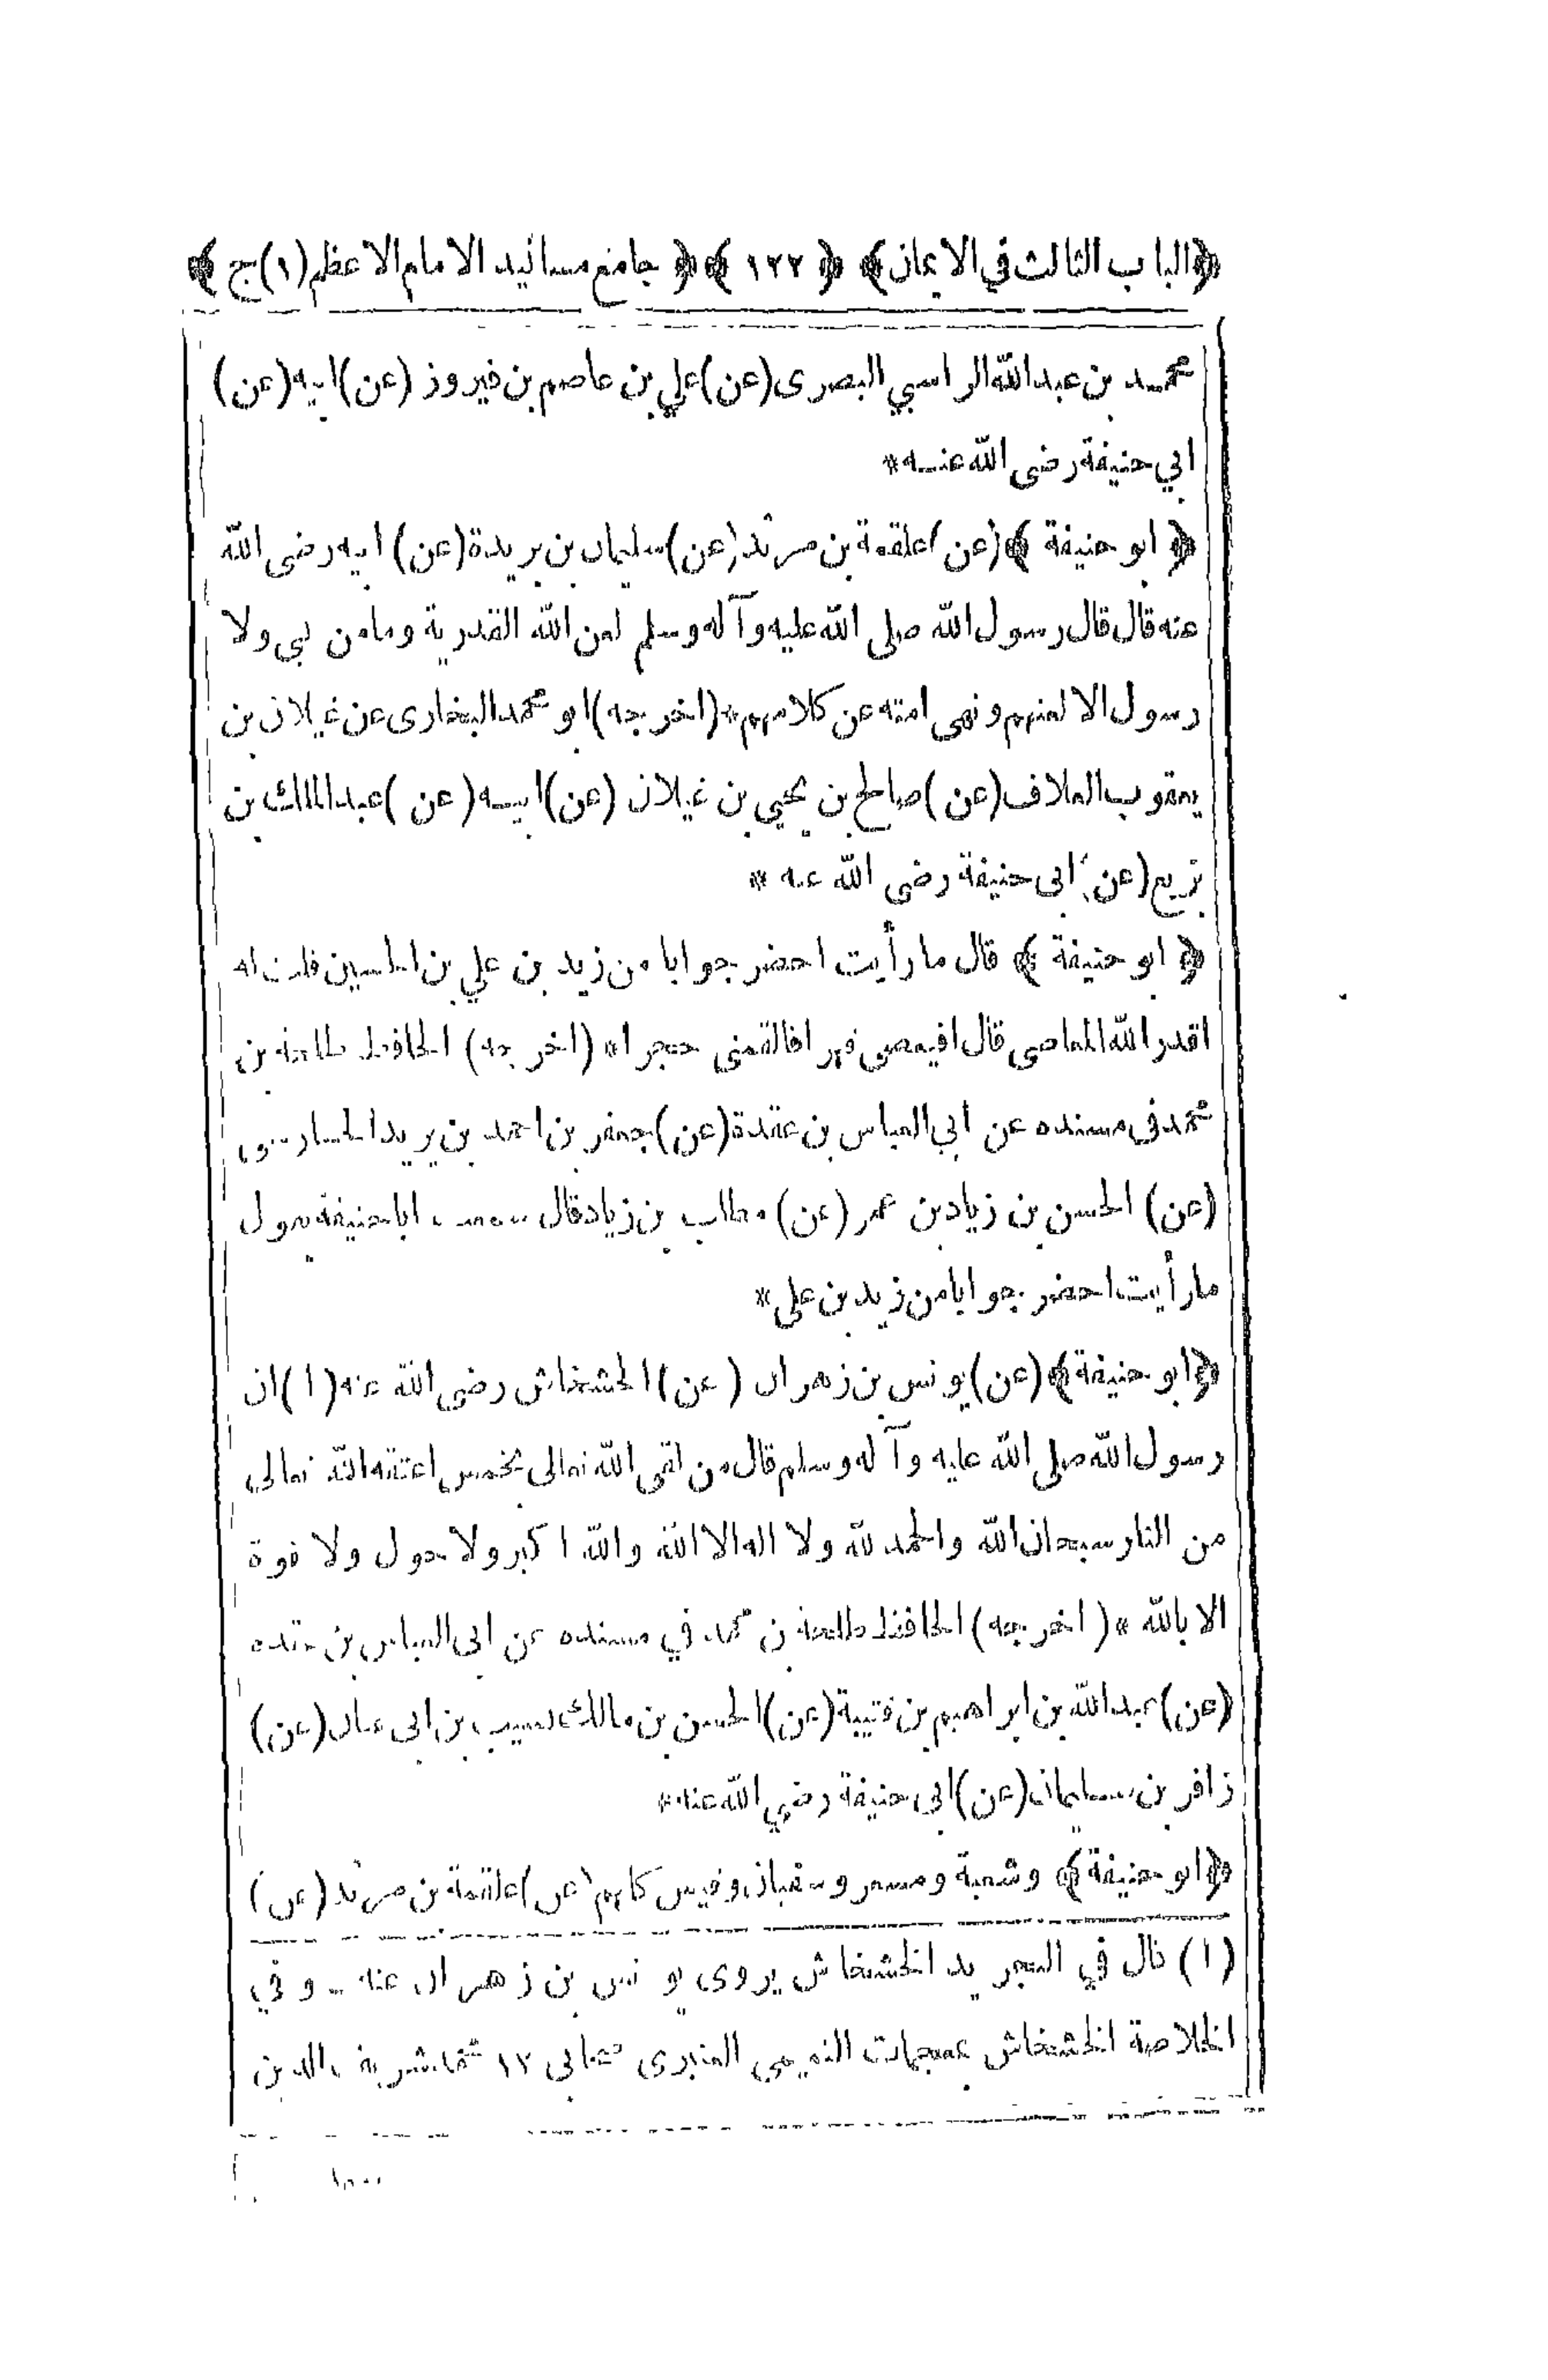 ﴿الباب الثالث في الايمان﴾ ﴿١٢٢﴾ ﴿جامع مسانيد الامام الاعظم (١) ج﴾
محمد بن عبد الله الراسبي البصرى (عن) علي بن عاصم بن فيروز (عن) ابيه (عن)
ابي حنيفة رضى الله عنه *
﴿ابو حنيفة﴾ (عن) علقمة بن مرثد (عن) سليمان بن بريدة (عن) ابيه رضى الله
عنه قال قال رسول الله صلى الله عليه وآله وسلم لعن الله القدرية وما من نبي ولا
رسول الا لعنهم ونهى امته عن كلامهم * (اخرجه) ابو محمد البخارى عن غيلان بن
يعقوب العلاف (عن) صالح بن يحيي بن غيلان (عن) ابيه (عن) عبد الملك بن
بزيع (عن) ابى حنيفة رضى الله عنه *
﴿ابو حنيفة﴾ قال ما رأيت احضر جوابا من زيد بن علي بن الحسين قلت له
اقدر الله المعاصى قال افيعصى قهرا فالقمنى حجرا * (اخرجه) الحافظ طلحة بن
محمد فى مسنده عن ابي العباس بن عقدة (عن) جعفر بن احمد بن يريد
(عن) الحسن بن زياد بن عمر (عن) مطلب بن زياد قال سمعت ابا حنيفة يقول
ما رأيت احضر جوابا من زيد بن على *
﴿ابو حنيفة﴾ (عن) يونس بن زهران (عن) الخشخاش رضى الله عنه (١) ان
رسول الله صلى الله عليه وآله وسلم قال من لقى الله تعالى بخمس اعتقه الله تعالى
من النار سبحان الله والحمد لله ولا اله الا الله والله اكبر ولا حول ولا قوة
الا بالله * (اخرجه) الحافظ طلحة بن محمد في مسنده عن ابى العباس بن عقده
(عن) عبد الله بن ابراهيم بن قتيبة (عن) الحسن بن مالك بن ابى
(عن)
زافر بن سليمان (عن) ابى حنيفة رضي الله عنه *
﴿ابو حنيفة﴾ وشعبة ومسعر وسفيان وقيس كلهم (عن) علقمة بن مرثد (عن)
(١) قال في التجريد الخشخاش يروى يونس بن زهران عنه - وفي
الخلاصة الخشخاش بمعجمات التميمي العنبرى صحابى ١٢